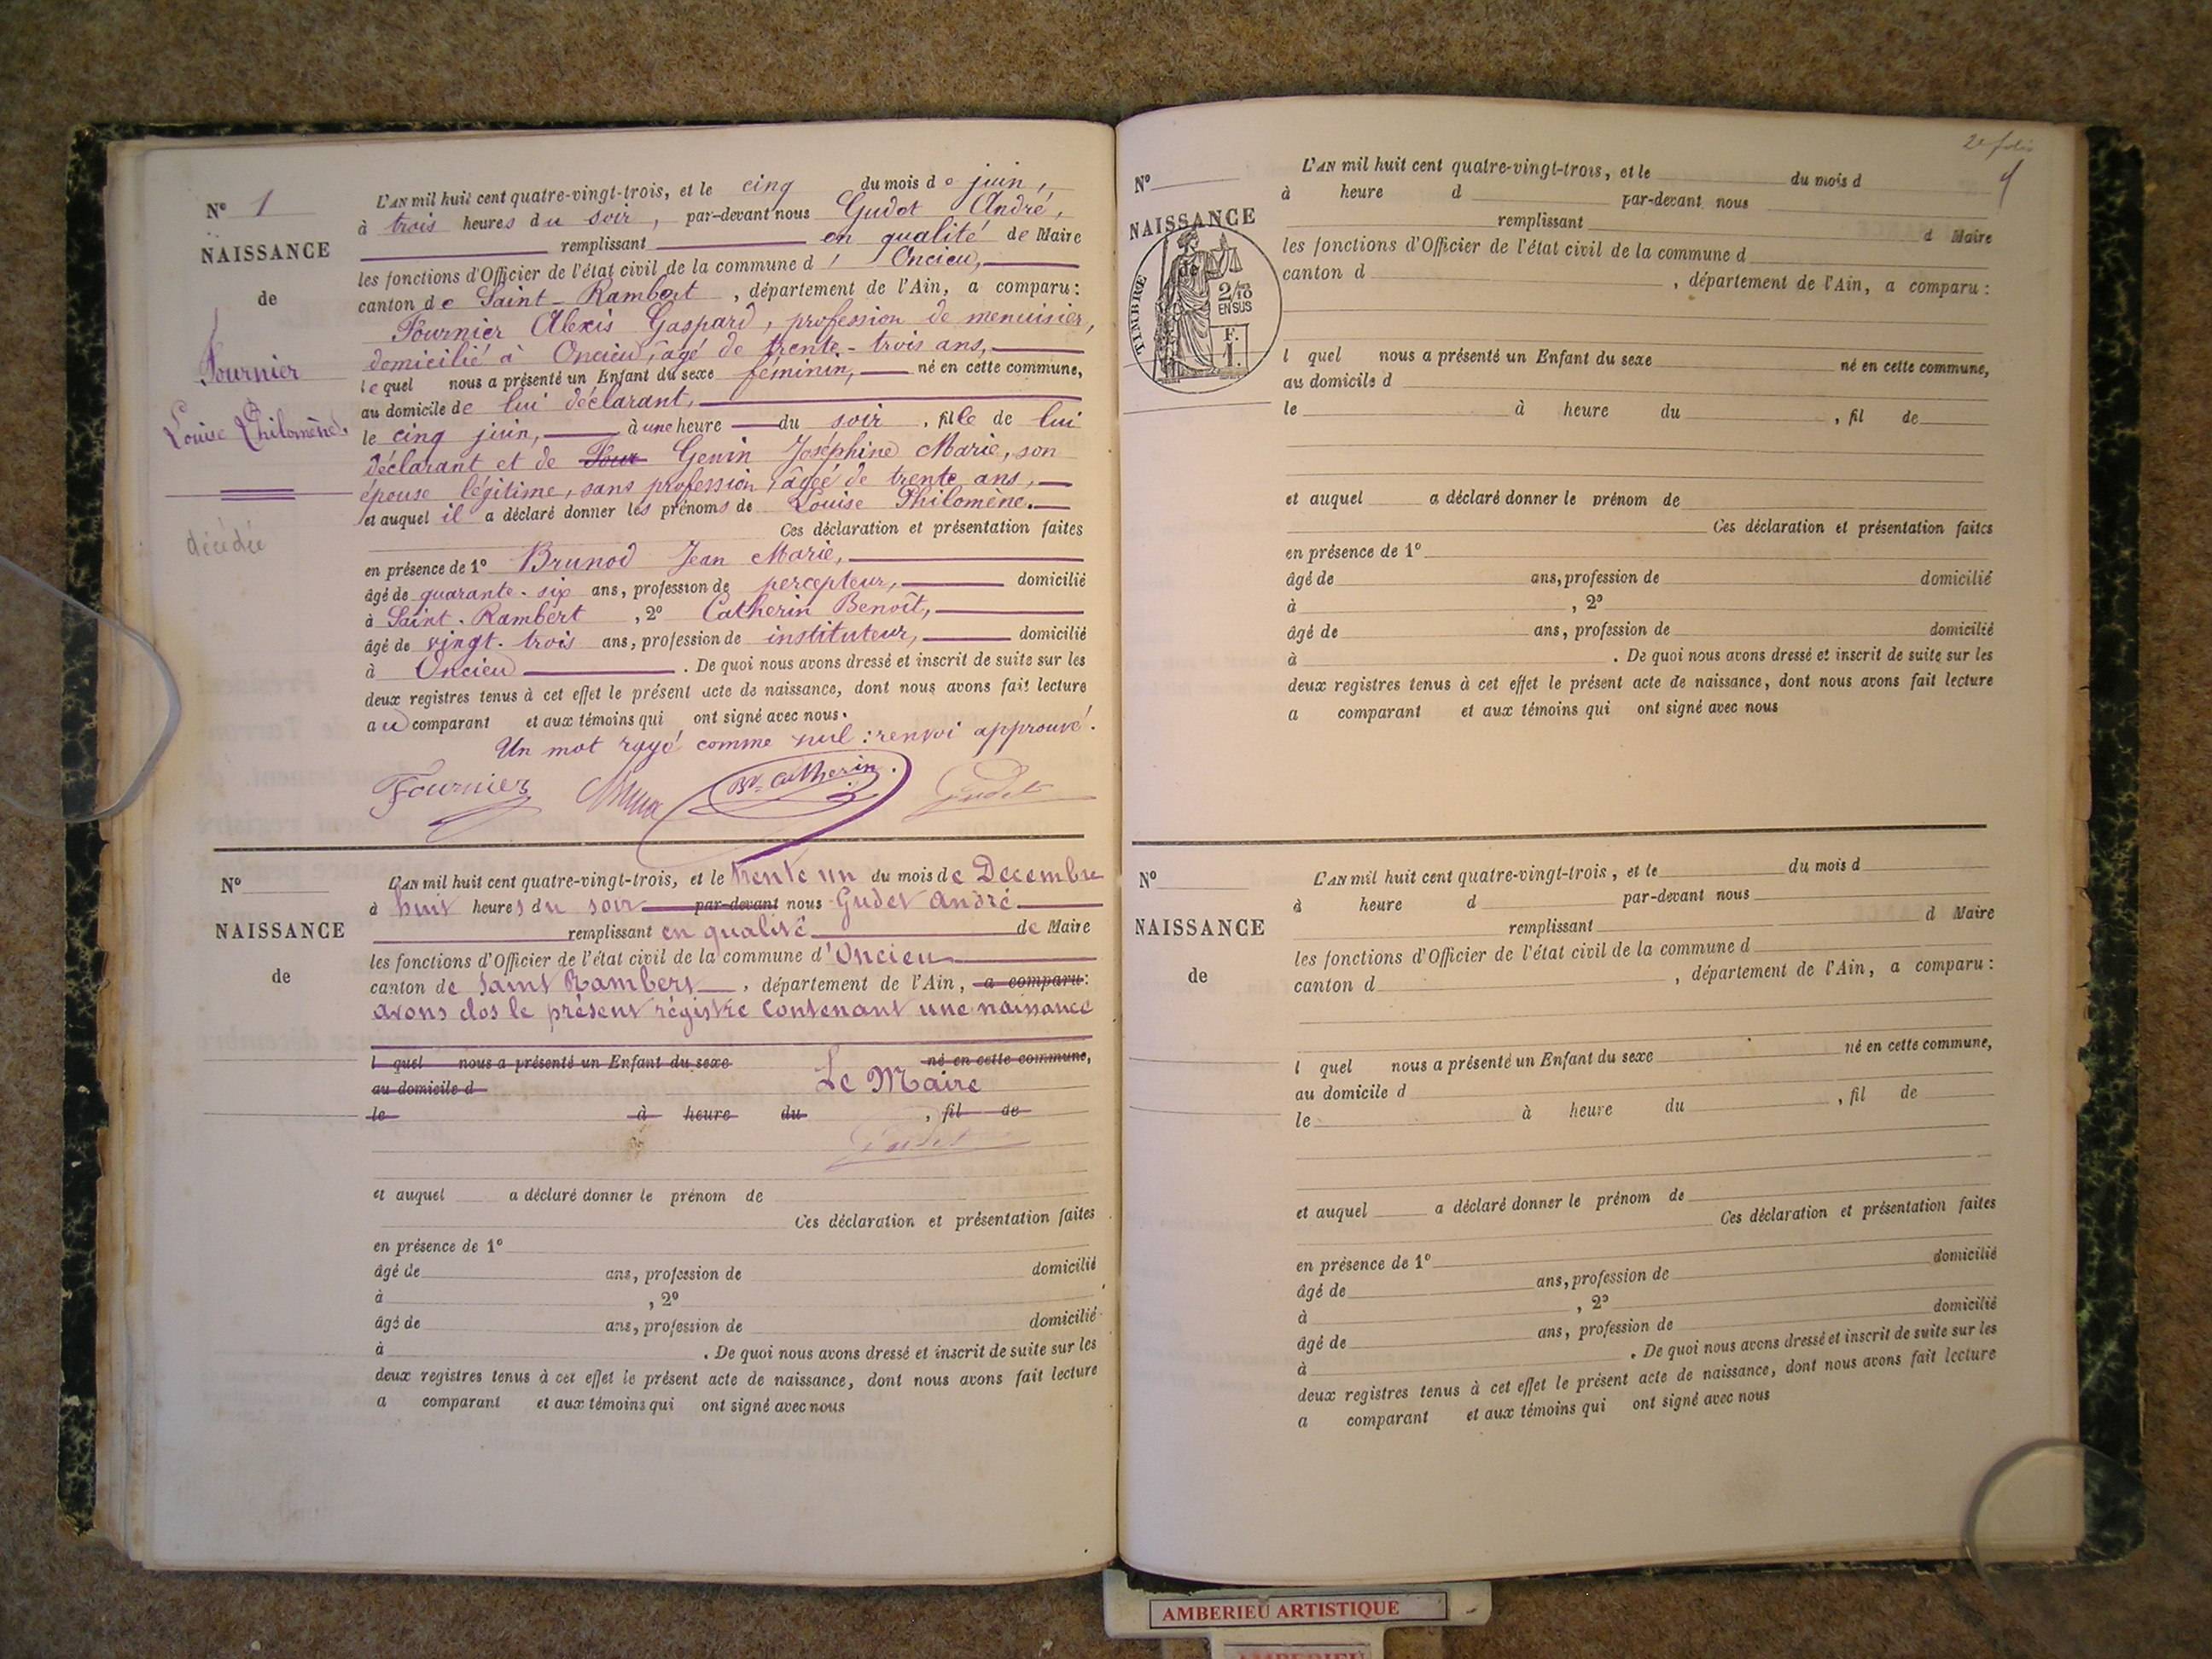 N° 1
NAISSANCE
de
Fournier
Louise Philomène.
décédée
L'AN mil huit cent quatre-vingt-trois, et le cinq du mois de juin,
à trois heures du soir, par-devant nous Gudet André,
remplissant en qualité de Maire
les fonctions d'Officier de l'état civil de la commune d' Oncieu,
canton de Saint-Rambert, département de l'Ain, a comparu:
Fournier Alexis Gaspard, profession de menuisier,
domicilié à Oncieu, âgé de trente-trois ans,
lequel nous a présenté un Enfant du sexe féminin, né en cette commune,
au domicile de lui déclarant,
le cinq juin, à une heure du soir, fille de lui
déclarant et de Four Genin Joséphine Marie, son
épouse légitime, sans profession, âgée de trente ans,
et auquel il a déclaré donner les prénoms de Louise Philomène.
Ces déclaration et présentation faites
en présence de 1° Brunod Jean Marie,
âgé de quarante-six ans, profession de percepteur, domicilié
à Saint-Rambert, 2° Catherin Benoît,
âgé de vingt-trois ans, profession de instituteur, domicilié
à Oncieu. De quoi nous avons dressé et inscrit de suite sur les
deux registres tenus à cet effet le présent acte de naissance, dont nous avons fait lecture
au comparant et aux témoins qui ont signé avec nous.
Un mot rayé comme nul: renvoi approuvé.
Fournier Bt Catherin. Gudet
N°
NAISSANCE
de
L'AN mil huit cent quatre-vingt-trois, et le trente un du mois de Decembre
à huit heures du soir par-devant nous Gudet André
remplissant en qualité de Maire
les fonctions d'Officier de l'état civil de la commune d'Oncieu
canton de Saint Rambert, département de l'Ain, a comparu:
avons clos le présent régistre contenant une naissance
l quel nous a présenté un Enfant du sexe né en cette commune,
au domicile d Le Maire
le à heure du , fil de
Gudet
et auquel a déclaré donner le prénom de
Ces déclaration et présentation faites
en présence de 1°
âgé de ans, profession de domicilié
à , 2°
âgé de ans, profession de domicilié
à . De quoi nous avons dressé et inscrit de suite sur les
deux registres tenus à cet effet le présent acte de naissance, dont nous avons fait lecture
a comparant et aux témoins qui ont signé avec nous
2e folio
N°
NAISSANCE
de
TIMBRE
2/10
EN SUS
F.
1.
L'AN mil huit cent quatre-vingt-trois, et le du mois d
à heure d par-devant nous
remplissant d Maire
les fonctions d'Officier de l'état civil de la commune d
canton d , département de l'Ain, a comparu:
l quel nous a présenté un Enfant du sexe né en cette commune,
au domicile d
le à heure du , fil de
et auquel a déclaré donner le prénom de
Ces déclaration et présentation faites
en présence de 1°
âgé de ans, profession de domicilié
à , 2°
âgé de ans, profession de domicilié
à . De quoi nous avons dressé et inscrit de suite sur les
deux registres tenus à cet effet le présent acte de naissance, dont nous avons fait lecture
a comparant et aux témoins qui ont signé avec nous
N°
NAISSANCE
de
L'AN mil huit cent quatre-vingt-trois, et le du mois d
à heure d par-devant nous
remplissant d Maire
les fonctions d'Officier de l'état civil de la commune d
canton d , département de l'Ain, a comparu:
l quel nous a présenté un Enfant du sexe né en cette commune,
au domicile d
le à heure du , fil de
et auquel a déclaré donner le prénom de
Ces déclaration et présentation faites
en présence de 1°
âgé de ans, profession de domicilié
à , 2°
âgé de ans, profession de domicilié
à . De quoi nous avons dressé et inscrit de suite sur les
deux registres tenus à cet effet le présent acte de naissance, dont nous avons fait lecture
a comparant et aux témoins qui ont signé avec nous
AMBERIEU ARTISTIQUE
AMBERIEU